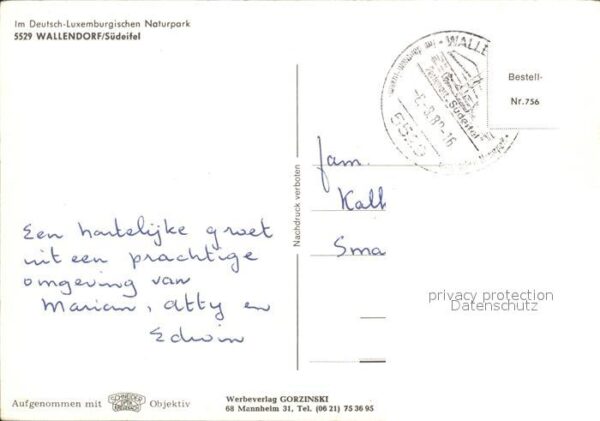 Im Deutsch-Luxemburgischen Naturpark
5529 WALLENDORF/Südeifel
WALLE
Südeifel
-6.8.82-16
5529
Bestell-
Nr. 756
Nachdruck verboten
fam.
Kalk
Sma
Een hartelijke groet
uit een prachtige
omgeving van
Marian, Atty en
Edwin
privacy protection
Datenschutz
Aufgenommen mit
SCHNEIDER
KREUZNACH
Objektiv
Werbeverlag GORZINSKI
68 Mannheim 31, Tel. (06 21) 75 36 95